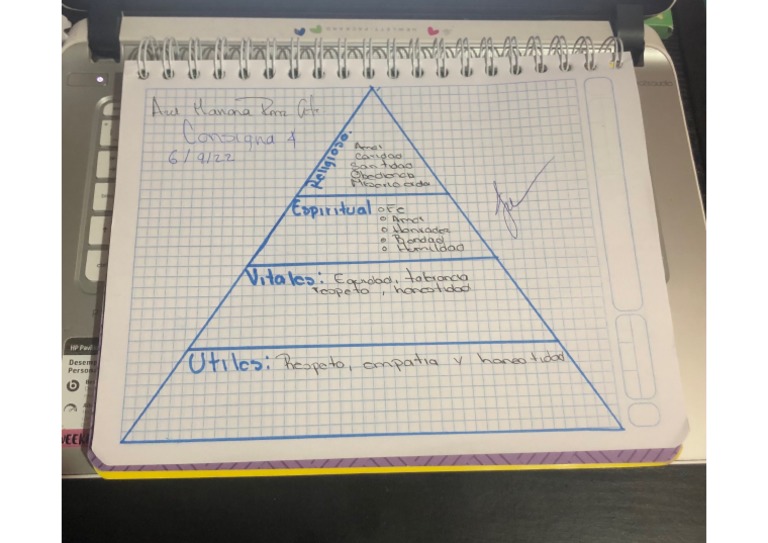 Mariana
Consigna 4
6/9/22
Religioso.
Amor
Caridad
Santidad
Obediencia
Misericordia
Espiritual o Fe
o Amor
o Honradez
o Bondad
o Humildad
Vitales: Equidad, tolerancia
respeto, honestidad
Utiles: Respeto, empatia y honestidad
HP Pavil
Desem
Persona